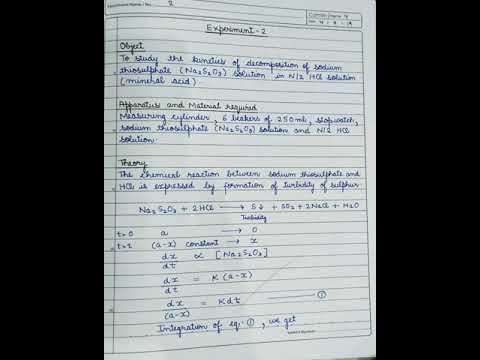 Experiment Name / No. 2
Experiment - 2
Object
To study the kinetics of decomposition of sodium
thiosulphate (Na2S2O3) solution in N/2 HCl solution
(mineral acid)
Apparatus and Material required
Measuring cylinder, 6 beakers of 250ml, stopwatch,
sodium thiosulphate (Na2S2O3) solution and N/2 HCl
solution.
Theory
The chemical reaction between sodium thiosulphate and
HCl is expressed by formation of turbidity of sulphur
Na2S2O3 + 2HCl ⟶ S↓ + SO2 + 2NaCl + H2O
Turbidity
t=0 a ⟶ 0
t=t (a-x) constant ⟶ x
dx/dt ∝ [Na2S2O3]
dx/dt = K(a-x)
dx/(a-x) = Kdt ①
Integration of eq. ①, we get